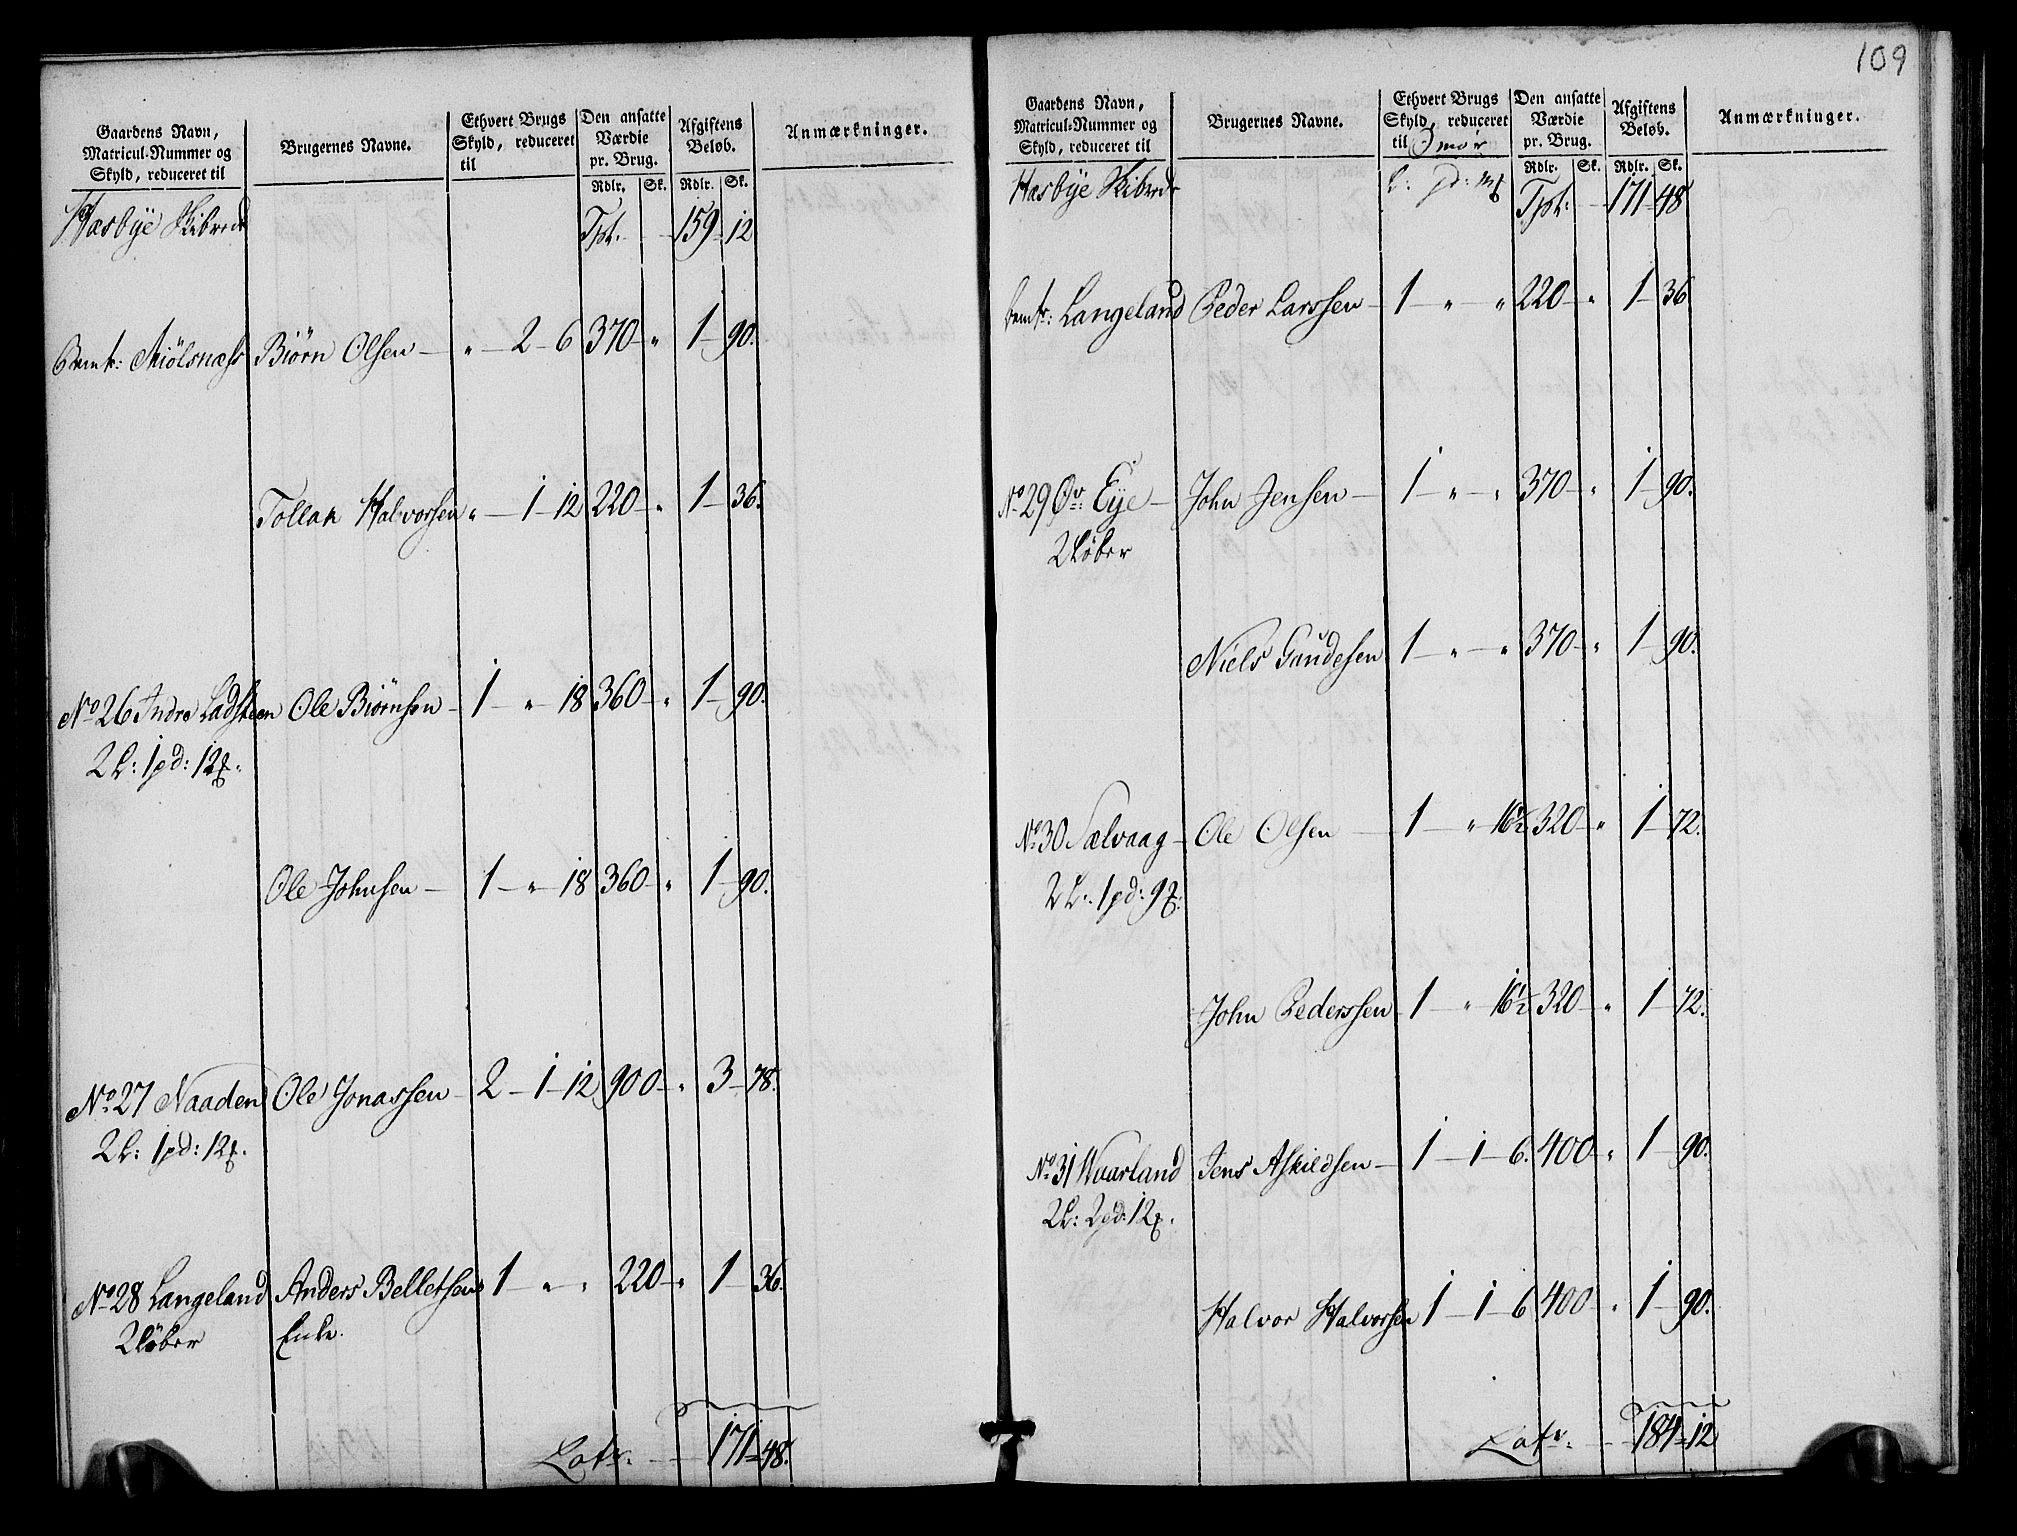 Gaardens Navn, Matricul-Nummer og Skyld, reduceret til | Brugernes Navne. | Ethvert Brugs Skyld, reduceret til | Den ansatte Værdie pr. Brug. Rdlr. Sk. | Afgiftens Beløb. Rdlr. Sk. | Anmærkninger.
Hasbye Skibrede Tpt. 159 12
Miölsnæss Biørn Olsen - " - 2 - 6 370 - " 1 - 90.
Tollak Halvorsen " - 1 - 12 220 - " 1 - 36.
No 26 Indre Ladsteen Ole Biørnsen - 1 - " 18 360 - " 1 - 90.
2 L: 1 pd: 12
Ole Johnsen - 1 - " - 18 360 - " 1 - 90.
No 27 Naaden Ole Jonassen - 2 - 1 - 12 900 - " 3 - 78.
2 L: 1 pd: 12
No 28 Langeland Anders Belletsens 1 - " - " 220 - " 1 - 36.
2 Løber Enke.
Latr. 171 - 48.
109
Gaardens Navn, Matricul-Nummer og Skyld, reduceret til | Brugernes Navne. | Ethvert Brugs Skyld, reduceret til Smør | Den ansatte Værdie pr. Brug. Rdlr. Sk. | Afgiftens Beløb. Rdlr. Sk. | Anmærkninger.
Hasbye Skibrede L: pd: Mk Tpt. 171 - 48
Langeland Peder Larssen - 1 - " - " 220 - " 1 - 36
No 29 Øv: Eije - John Jensen - 1 - " - " 370 - " 1 - 90.
2 Løber
Niels Gaudesen 1 - " - " 370 - " 1 - 90.
No 30 Sælvaag - Ole Olsen - 1 - " 16½ 320 - " 1 - 72.
2 L: 1 pd: 9
John Pederssen - 1 - " 16½ 320 - " 1 - 72.
No 31 Waarland Jens Askildsen - 1 - 1 - 6. 400 - " 1 - 90.
2 L: 2 pd: 12
Halvor Halvorsen 1 - 1 - 6 400 - " 1 - 90.
Latr. 184 - 12